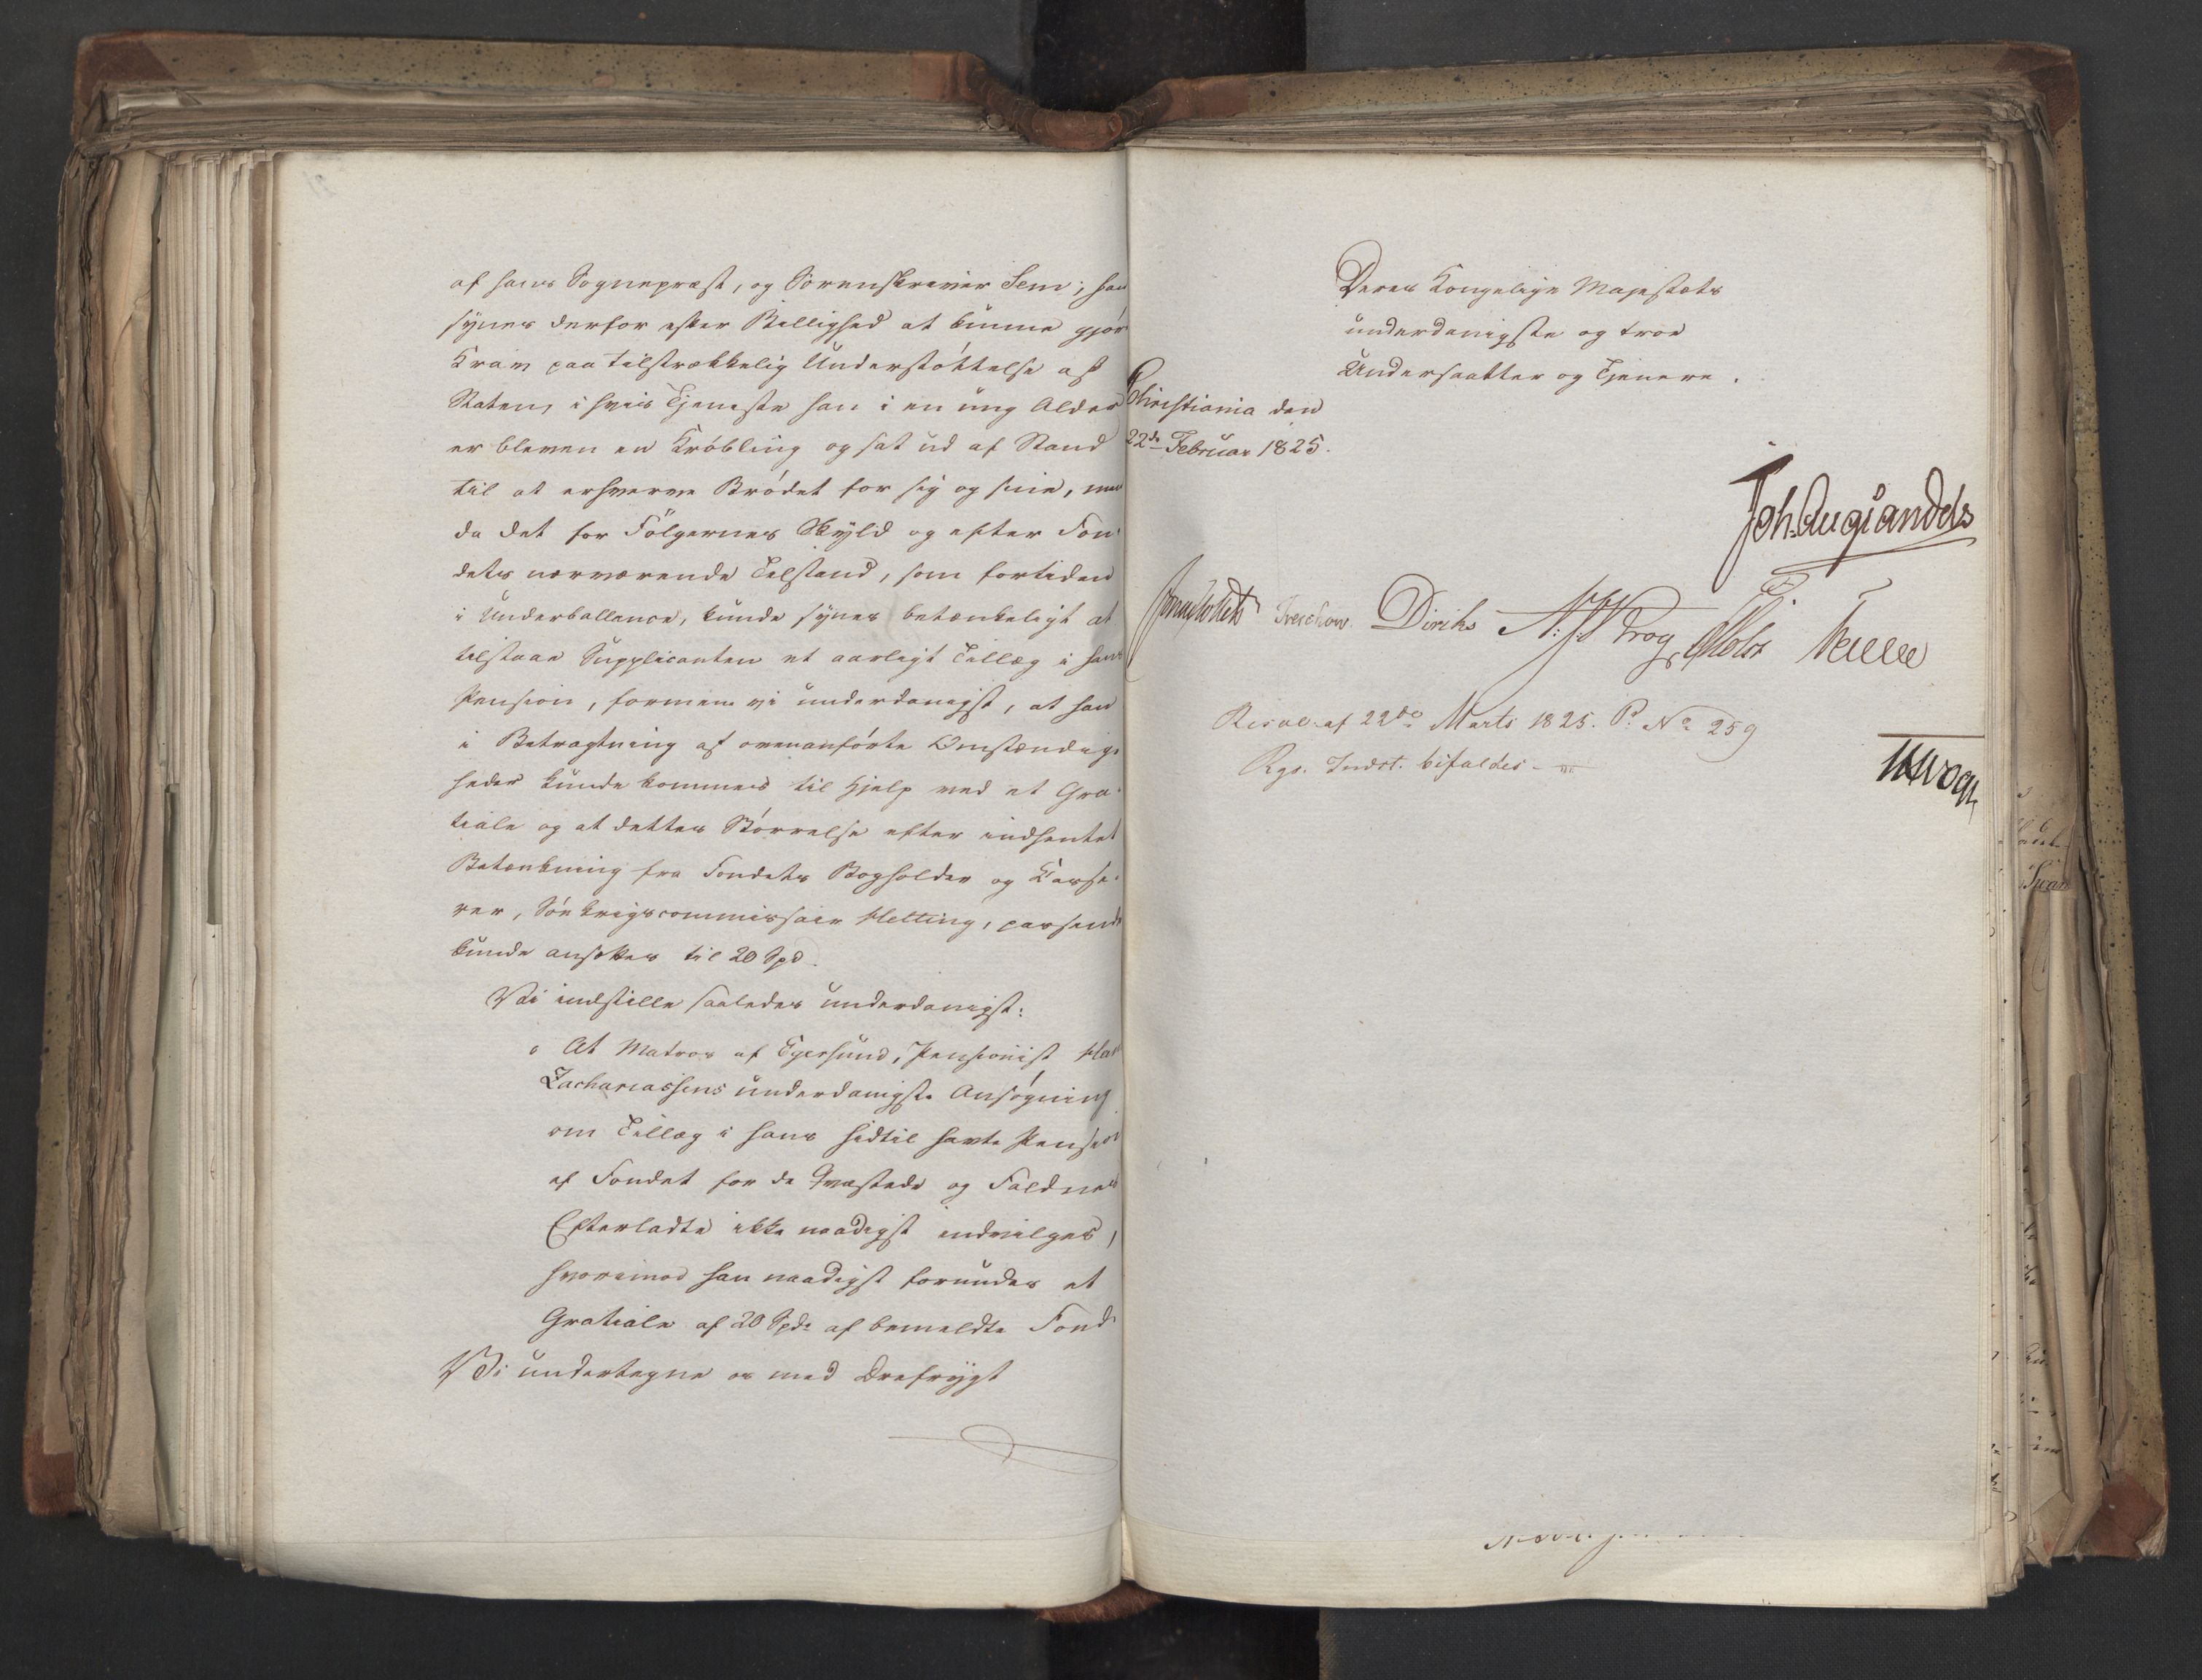 af hans Sognepræst, og Sorenskriver Sem; han
synes derfor efter Billighed at kunne gjøre
Krav paa tilstrækkelig Understøttelse af
Staten, i hvis Tjeneste han i en ung Alder
er bleven en Krøbling og sat ud af Stand
til at erhverve Brødet for sig og sine, men
da det for Følgernes Skyld og efter Fon-
dets nærværende Tilstand, som fortiden
i Underballance, kunde synes betænkeligt at
tilstaae Supplicanten et aarligt Tillæg i hans
Pension, formene vi underdanigst, at han
i Betragtning af ovenanførte Omstændig-
heder kunde kommes til Hjelp med et Gra-
tiale og at dettes Størrelse efter indhentet
Betænkning fra Fondets Bogholder og Kasse-
rer, Søekrigscommissair Hetting, passende
kunde ansættes til 20 Spd.
Vi indstille saaledes underdanigst:
At Matros af Egersund, Pensionist
Zachariassens underdanigste Ansøgning
om Tillæg i hans hidtil havte Pension
af Fondet for de Qvæstede og Faldnes
Efterladte ikke naadigst indvilges,
hvorimod han naadigst forundes et
Gratiale af 20 Spd. af bemeldte Fond.
Vi undertegne os med Ærefrygt
Deres Kongelige Majestæts
underdanigste og troe
Undersaatter og Tjenere.
Christiania den
22de Februar 1825.
Joh. Aug Sandels
Sommerhielm Treschow. Diriks A: J: Krog Holst
Resol. af 22de Marts 1825. P. No 259
Rgs. Indst. bifaldes.